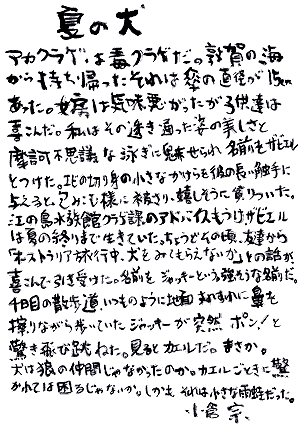 夏の犬
アカクラゲは毒クラゲだ。敦賀の海
から持ち帰ったそれは傘の直径が15cm
あった。女房は気味悪がったが子供達は
喜こんだ。私はその透き通った姿の美しさと
摩訶不思議な泳ぎに魅せられ名前をザビエル
とつけた。エビの切り身の小さなかけらを彼の長い触手に
与えると、包みこむ様に被さり、嬉しそうに食いついた。
江の島水族館クラゲ課のアドバイスもうけザビエル
は夏の終りまで生きていた。ちょうどその頃、友達から
「オーストラリア旅行中、犬をみてもらえないか」との話が
喜こんで引き受けた。名前をジャッキーという強そうな名前だ。
4日目の散歩道、いつものように地面すれすれに鼻を
擦りながら歩いていたジャッキーが突然ポン!と
驚き飛び跳ねた。見るとカエルだ。まさか。
犬は狼の仲間じゃなかったのか。カエルごときに驚
かれては困るじゃないか。しかも、それは小さな雨蛙だった。
小倉宗